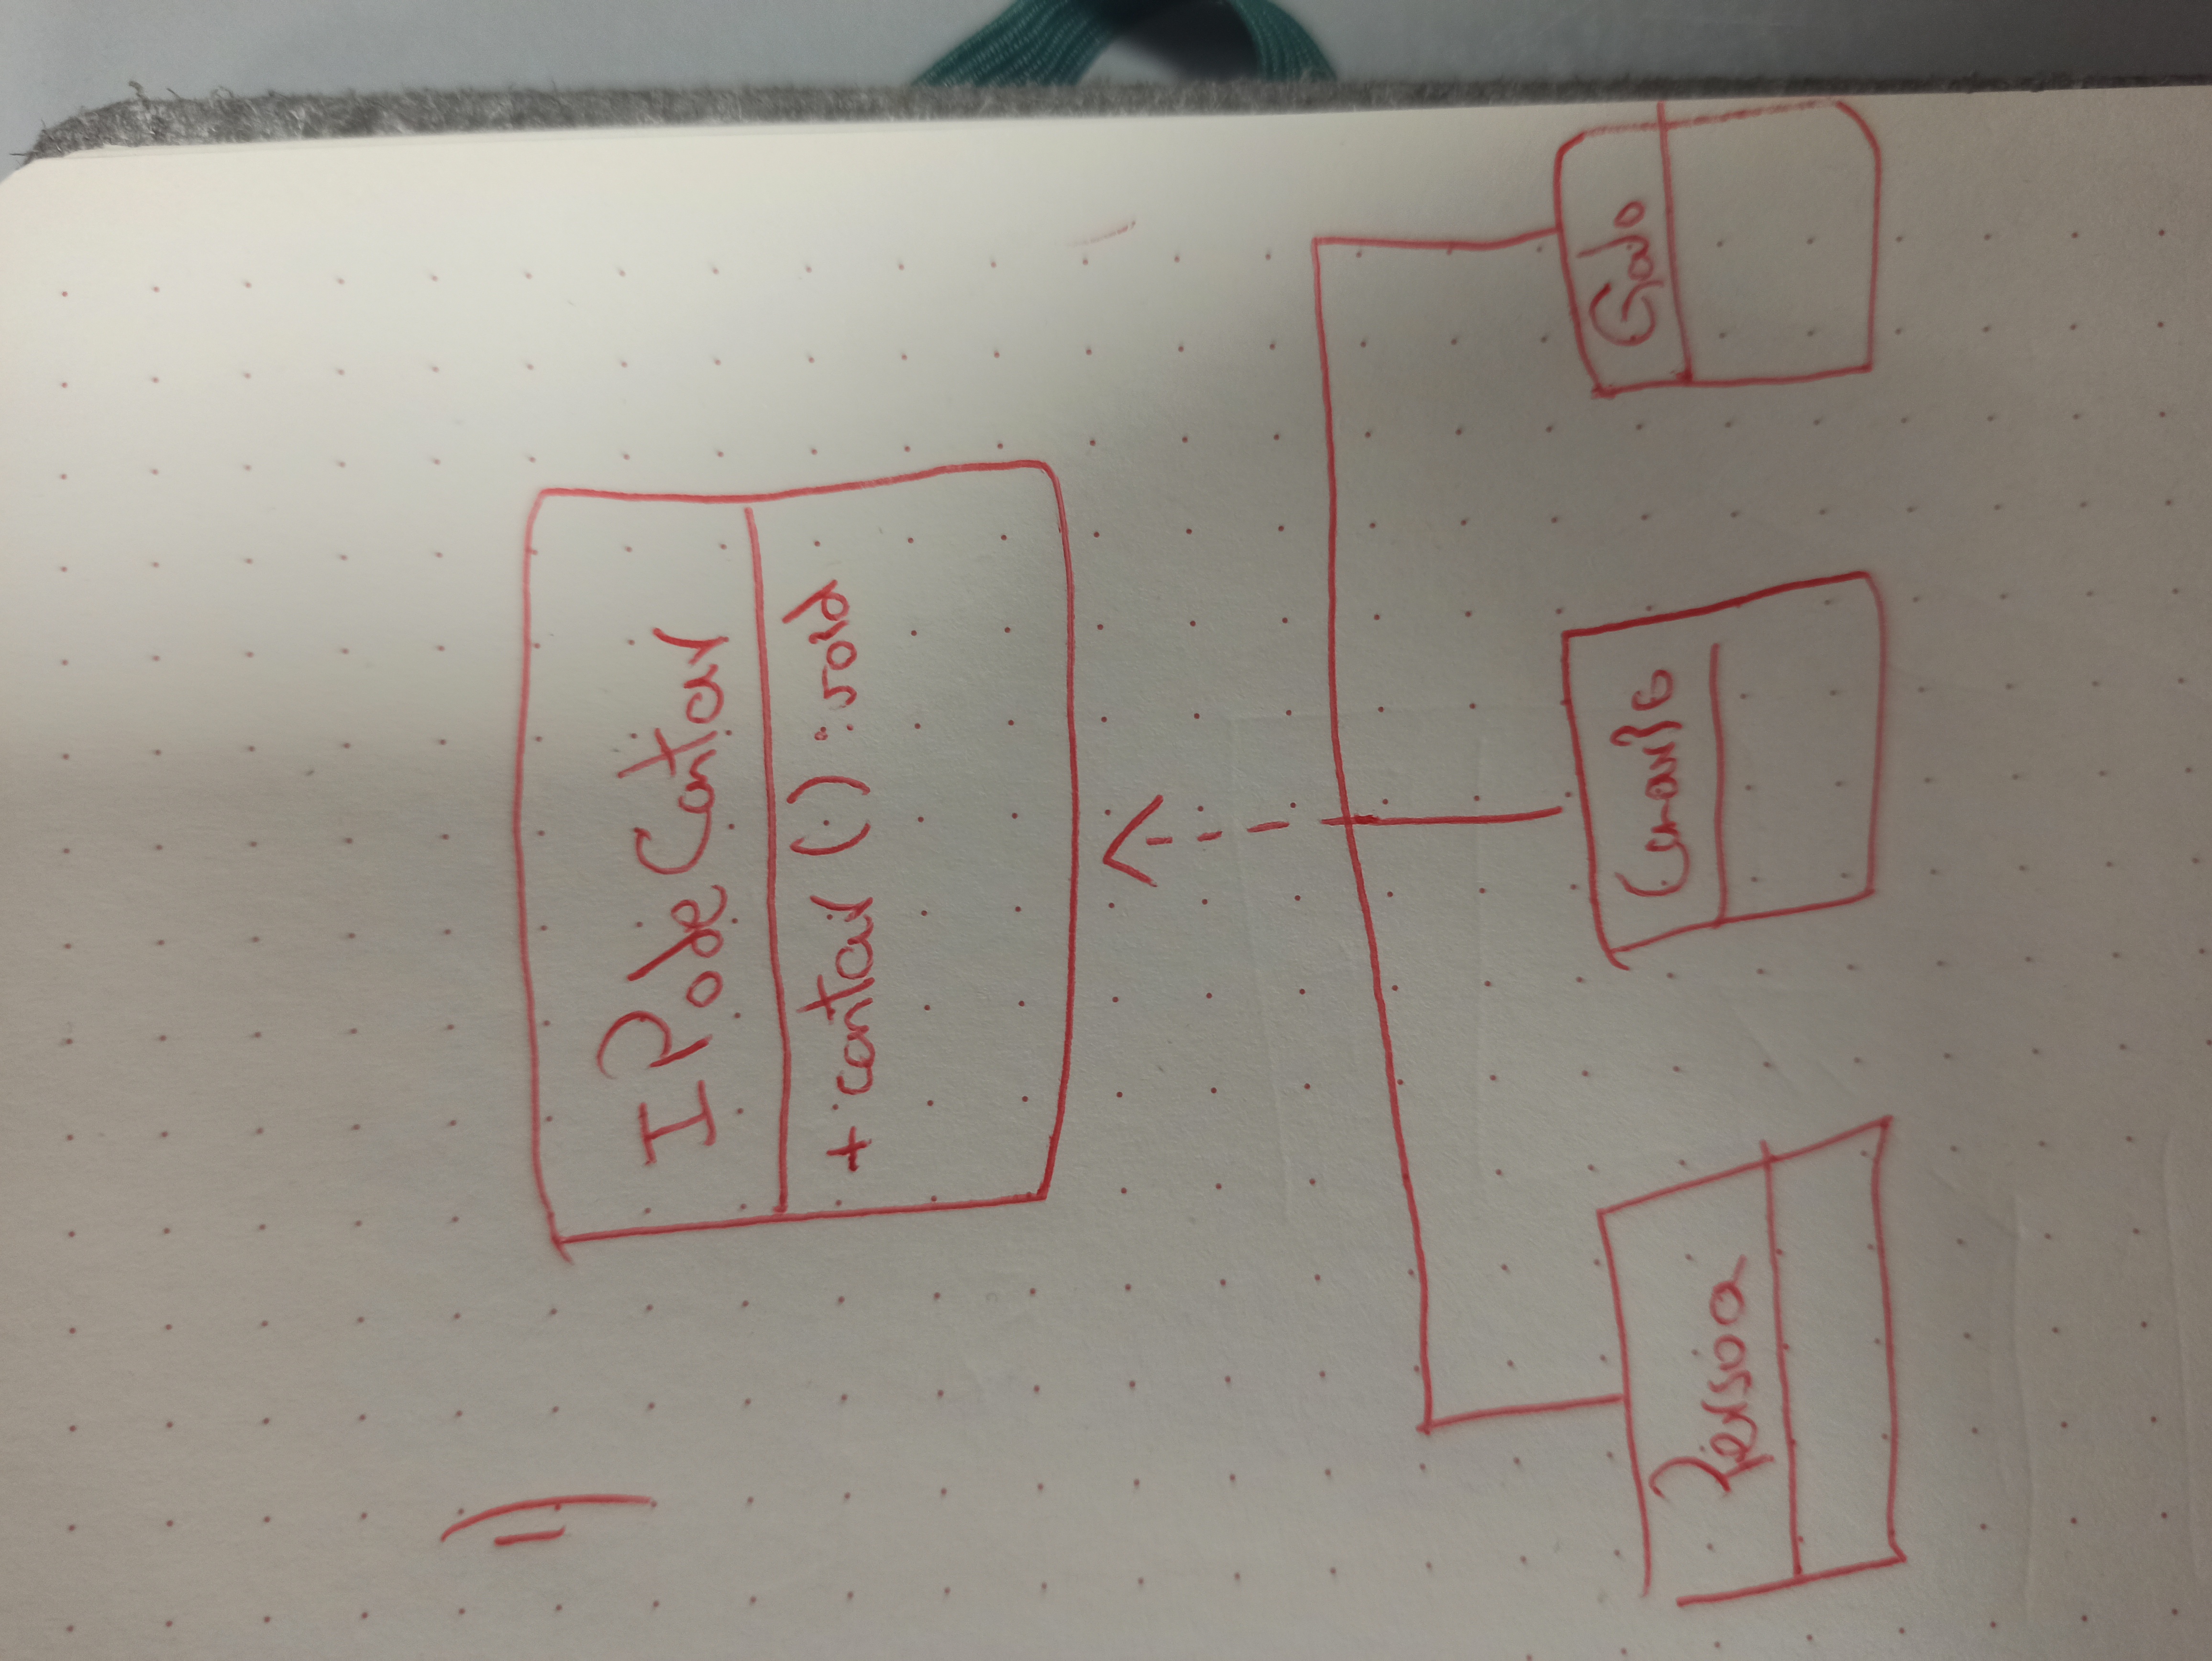 1)
IPodeCantar
+ cantar () : void
Pessoa
Canario
Galo